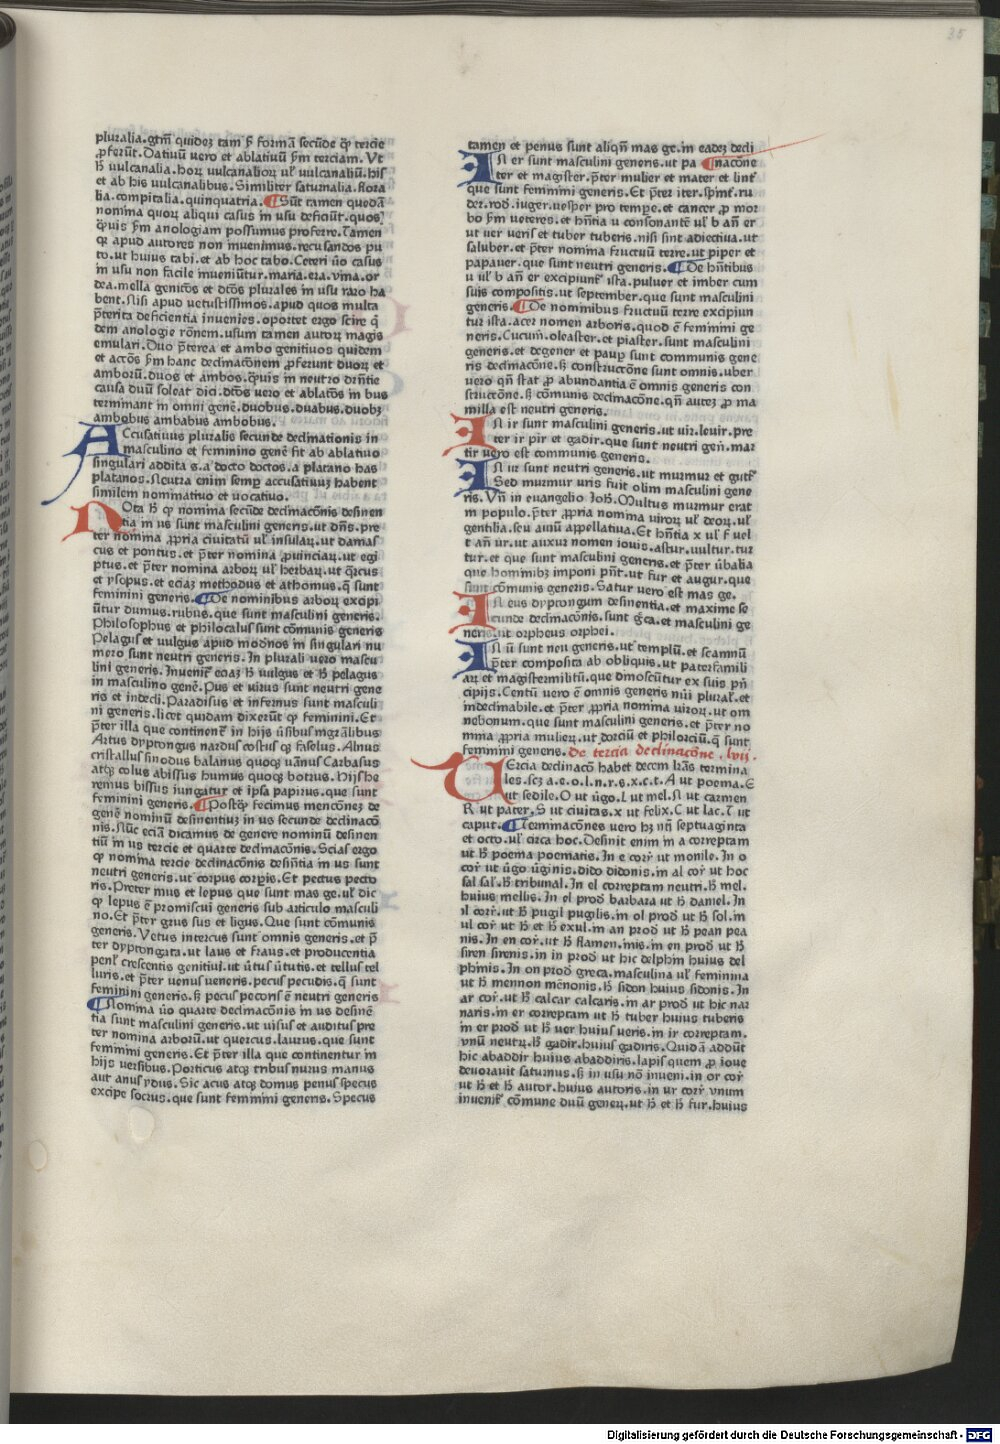 35
pluralia.gtm̄ quidez tam ꝑ formā secūde qͥ tercie
ꝓferūt. Datiuū uero et ablatiuū ꝑm terciam. Vt
h̄ vulcanalia. hoꝝ vulcanalioꝝ ul̓ vulcanaliū. his
et ab his vulcanalibus. Similiter saturnalia. flora
lia. compitalia. quinquatria. ¶ Sūt tamen quedā
nomina quoꝝ aliqui casus in usu deficiūt. quos
qͣuis ꝑm anologiam possumus proferre. Tamen
qꝛ apud autores non inuenimus. recusandos pu
to. ut huius tabi. et ab hoc tabo. Ceteri ūo casus
in usu non facile inueniūtur. maria. era. vina. or
dea. mella genitōs et dtōs plurales in usu raro ha
bent. Nisi apud vetustissimos. apud quos multa
p̄terita deficientia inuenies. oportet ergo scire qͥ
dem anologie rōnem. usum tamen autoꝝ magis
emulari. Duo p̄terea et ambo genitiuos quidem
et actōs ꝑm hanc declinacōnem ꝓferunt duoꝝ et
amborū. duos et ambos. qͣuis in neutro drn̄tie
causa duū soleat dici. dtōs vero et ablatōs in bus
terminant in omni genē. duobus. duabus. duobꝫ
ambobus ambabus ambobus.
Accusatiuus pluralis secunde declinationis in
masculino et feminino genē fit ab ablatiuo
singulari addita s. a docto doctos. a platano has
platanos. Neutra enim semꝑ accusatiuuꝫ habent
similem nominatiuo et vocatiuo.
Nota h̄ qꝫ nomina secūde declinacōnis desinen
tia in us sunt masculini generis. ut dn̄s. pre
ter nomina ꝓpria ciuitatū ul̓ insulaꝝ. ut damas
cus et pontus. et p̄ter nomina ꝓuinciaꝝ. ut egi
ptus. et p̄ter nomina arboꝝ ul̓ herbaꝝ. ut qͣrcus
et ysopus. et eciaꝫ methodus et athomus. q̄ sunt
feminini generis. ¶ De nominibus arboꝝ excipi
ūtur dumus. rubus. que sunt masculini generis.
Philosophus et philocalus sunt cōmunis generis
Pelagus et vulgus apud modnos in singulari nu
mero sunt neutri generis. In plurali vero mascu
lini generis. Inuenit᷑ eciaꝫ h̄ vulgus et h̄ pelagus
in masculino genē. Pus et virus sunt neutri gene
ris et indecli. Paradisus et infernus sunt masculi
ni generis. licet quidam dixerūt qꝫ feminini. Et
p̄ter illa que continent᷑ in hijs ūsibus mgralibus
Artus dyptongus nardus costus qꝫ faselus. Alnus
cristallus sinodus balanus quoqꝫ uānus Carbasus
atqꝫ colus abissus humus quoqꝫ botrus. Hijs he
remus bissus iungatur et ipsa papirus. que sunt
feminini generis. ¶ Postqͣ fecimus mencōneꝫ de
genē nominū desinentiuꝫ in us secunde declinacō
nis. Nūc eciā dicamus de genere nominū desinen
tiū in us tercie et quarte declinacōnis. Scias ergo
qꝫ nomina tercie declinacōnis desin̄tia in us sunt
neutri generis. ut corpus corꝑis. Et pectus pecto
ris. Preter mus et lepus que sunt mas ge. ul̓ dic
qꝫ lepus ē promiscui generis sub articulo masculi
no. Et p̄ter grus sus et ligus. Que sunt cōmunis
generis. Vetus intercus sunt omnis generis. et p̄
ter dyptongata. ut laus et fraus. et producentia
penl̓ crescentis genitiui. ut ūtus ūtutis. et tellus tel
luris. et p̄ter uenus ueneris. pecus pecudis. q̄ sunt
feminini generis. sꝫ pecus pecoris ē neutri generis
¶ Nomina ūo quarte declinacōnis in us desinē
tia sunt masculini generis. ut uisus et auditus pre
ter nomina arborū. ut quercus. laurus. que sunt
feminini generis. Et p̄ter illa que continentur in
hijs versibus. Porticus atqꝫ tribus nurus manus
aut anus ydus. Sic acus atqꝫ domus penus specus
excipe socrus. que sunt feminini generis. Specus
tamen et penus sunt aliqn̄ mas ge. in eadeꝫ decli
In er sunt masculini generis. ut pa ¶ nacōne
ter et magister. p̄ter mulier et mater et lint᷑
que sunt feminini generis. Et p̄ter iter. spint᷑. ru
der. rod. iuger. uesper pro tempe. et cancer ꝓ mor
bo ꝑm ueteres. et hn̄tia u consonantē ul̓ b an̄ er
ut uer ueris et tuber tuberis. nisi sint adiectiua. ut
saluber. et p̄ter nomina fructuū terre. ut piper et
papauer. que sunt neutri generis. ¶ De hn̄tibus
u ul̓ b an̄ er excipiunt᷑ ista. puluer et imber cum
suis compositis. ut september. que sunt masculini
generis. ¶ De nominibus fructuū terre excipiun
tur ista. acer nomen arboris. quod ē feminini ge
neris. Cucum̄. oleaster. et piaster. sunt masculini
generis. et degener et pauꝑ sunt communis gene
ris declinacōne. sꝫ constructōne sunt omnis. uber
vero qn̄ stat ꝓ abundantia ē omnis generis con
structōne. sꝫ cōmunis declinacōne. qn̄ auteꝫ ꝓ ma
milla est neutri generis.
In ir sunt masculini generis. ut uir. leuir. pre
ter ir pir et gadir. que sunt neutri gen̄. mar
tir vero est communis generis.
In ur sunt neutri generis. ut murmur et gutt᷑
Sed murmur uris fuit olim masculini gene
ris. Vn̄ in euangelio Joh̄. Multus murmur erat
in populo. p̄ter ꝓpria nomina uiroꝝ ul̓ deoꝝ. ul̓
gentilia. seu auiū appellatiua. Et hn̄tia x ul̓ f uel
t an̄ ur. ut auxur nomen iouis. astur. uultur. tur
tur. et que sunt masculini generis. et p̄ter ūbalia
que hominibꝫ imponi pn̄t. ut fur et augur. que
sunt cōmunis generis. Satur vero est mas ge.
In eus dyptongum desinentia. et maxime se
cunde declinacōnis. sunt gͤca. et masculini ge
neris. ut orpheus orphei.
In ū sunt neu generis. ut templū. et scamnū
p̄ter composita ab obliquis. ut paterfamili
aꝝ et magistermilitū. que dinoscūtur ex suis pn̄
cipijs. Centū vero ē omnis generis nūi plural᷑. et
indeclinabile. et p̄ter ꝓpria nomina uiroꝝ. ut om
nebonum. que sunt masculini generis. et p̄ter no
mina ꝓpria mulieꝝ. ut dorciū et philorciū. q̄ sunt
feminini generis. De tercia declinacōne. lvij.
Tercia declinacō habet decem lr̄as termina
les. scꝫ a. e. o. l. n. r. s. x. c. t. A ut poema. E
ut sedile. O ut ūgo. L ut mel. N ut carmen
R ut pater. S ut ciuitas. x ut felix. C ut lac. T ut
caput. ¶ Terminacōnes vero hꝫ nn̄ septuaginta
et octo. ul̓ circa hoc. Desinit enim in a correptam
ut h̄ poema poematis. In e corr̄ ut monile. In o
cor̄ ut ūgo ūginis. dido didonis. in al cor̄ ut hoc
sal sal᷑. h̄ tribunal. In el correptam neutri. h̄ mel.
huius mellis. In el prod̄ barbara ut h̄ daniel. In
il corr̄. ut h̄ pugil pugilis. in ol prod̄ ut h̄ sol. in
ul cor̄ ut h̄ et h̄ exul. in an prod̄ ut h̄ pean pea
nis. In en cor̄. ut h̄ flamen. inis. in en prod̄ ut h̄
siren sirenis. in in prod̄ ut hic delphin huius del
phinis. In on prod̄ greca. masculina ul̓ feminina
ut h̄ mennon mēnonis. h̄ sidon huius sidonis. In
ar cor̄. ut h̄ calcar calcaris. in ar prod̄ ut hic nar
naris. in er correptam ut h̄ tuber huius tuberis
in er prod̄ ut h̄ uer huius ueris. in ir correptam.
vnū neutꝝ. h̄ gadir. huius gadiris. Quidā addūt
hic abaddir huius abaddiris. lapis quem ꝓ ioue
deuorauit saturnus. sꝫ in usu nō inueni. in or cor̄
ut h̄ et h̄ autor. huius autoris. in ur corr̄ vnum
inuenit᷑ cōmune duū geneꝝ. ut h̄ et h̄ fur. huius
Digitalisierung gefördert durch die Deutsche Forschungsgemeinschaft - DFG